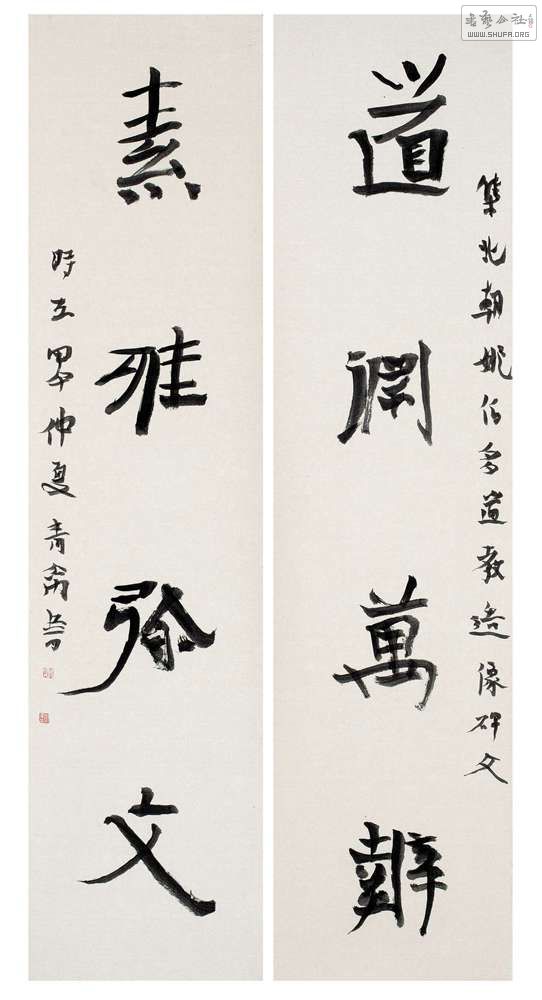 書藝公社
WWW.SHUFA.ORG
集北朝姚伯多道教造像碑文
道淵萬
素雅弥文
時在甲午仲夏青